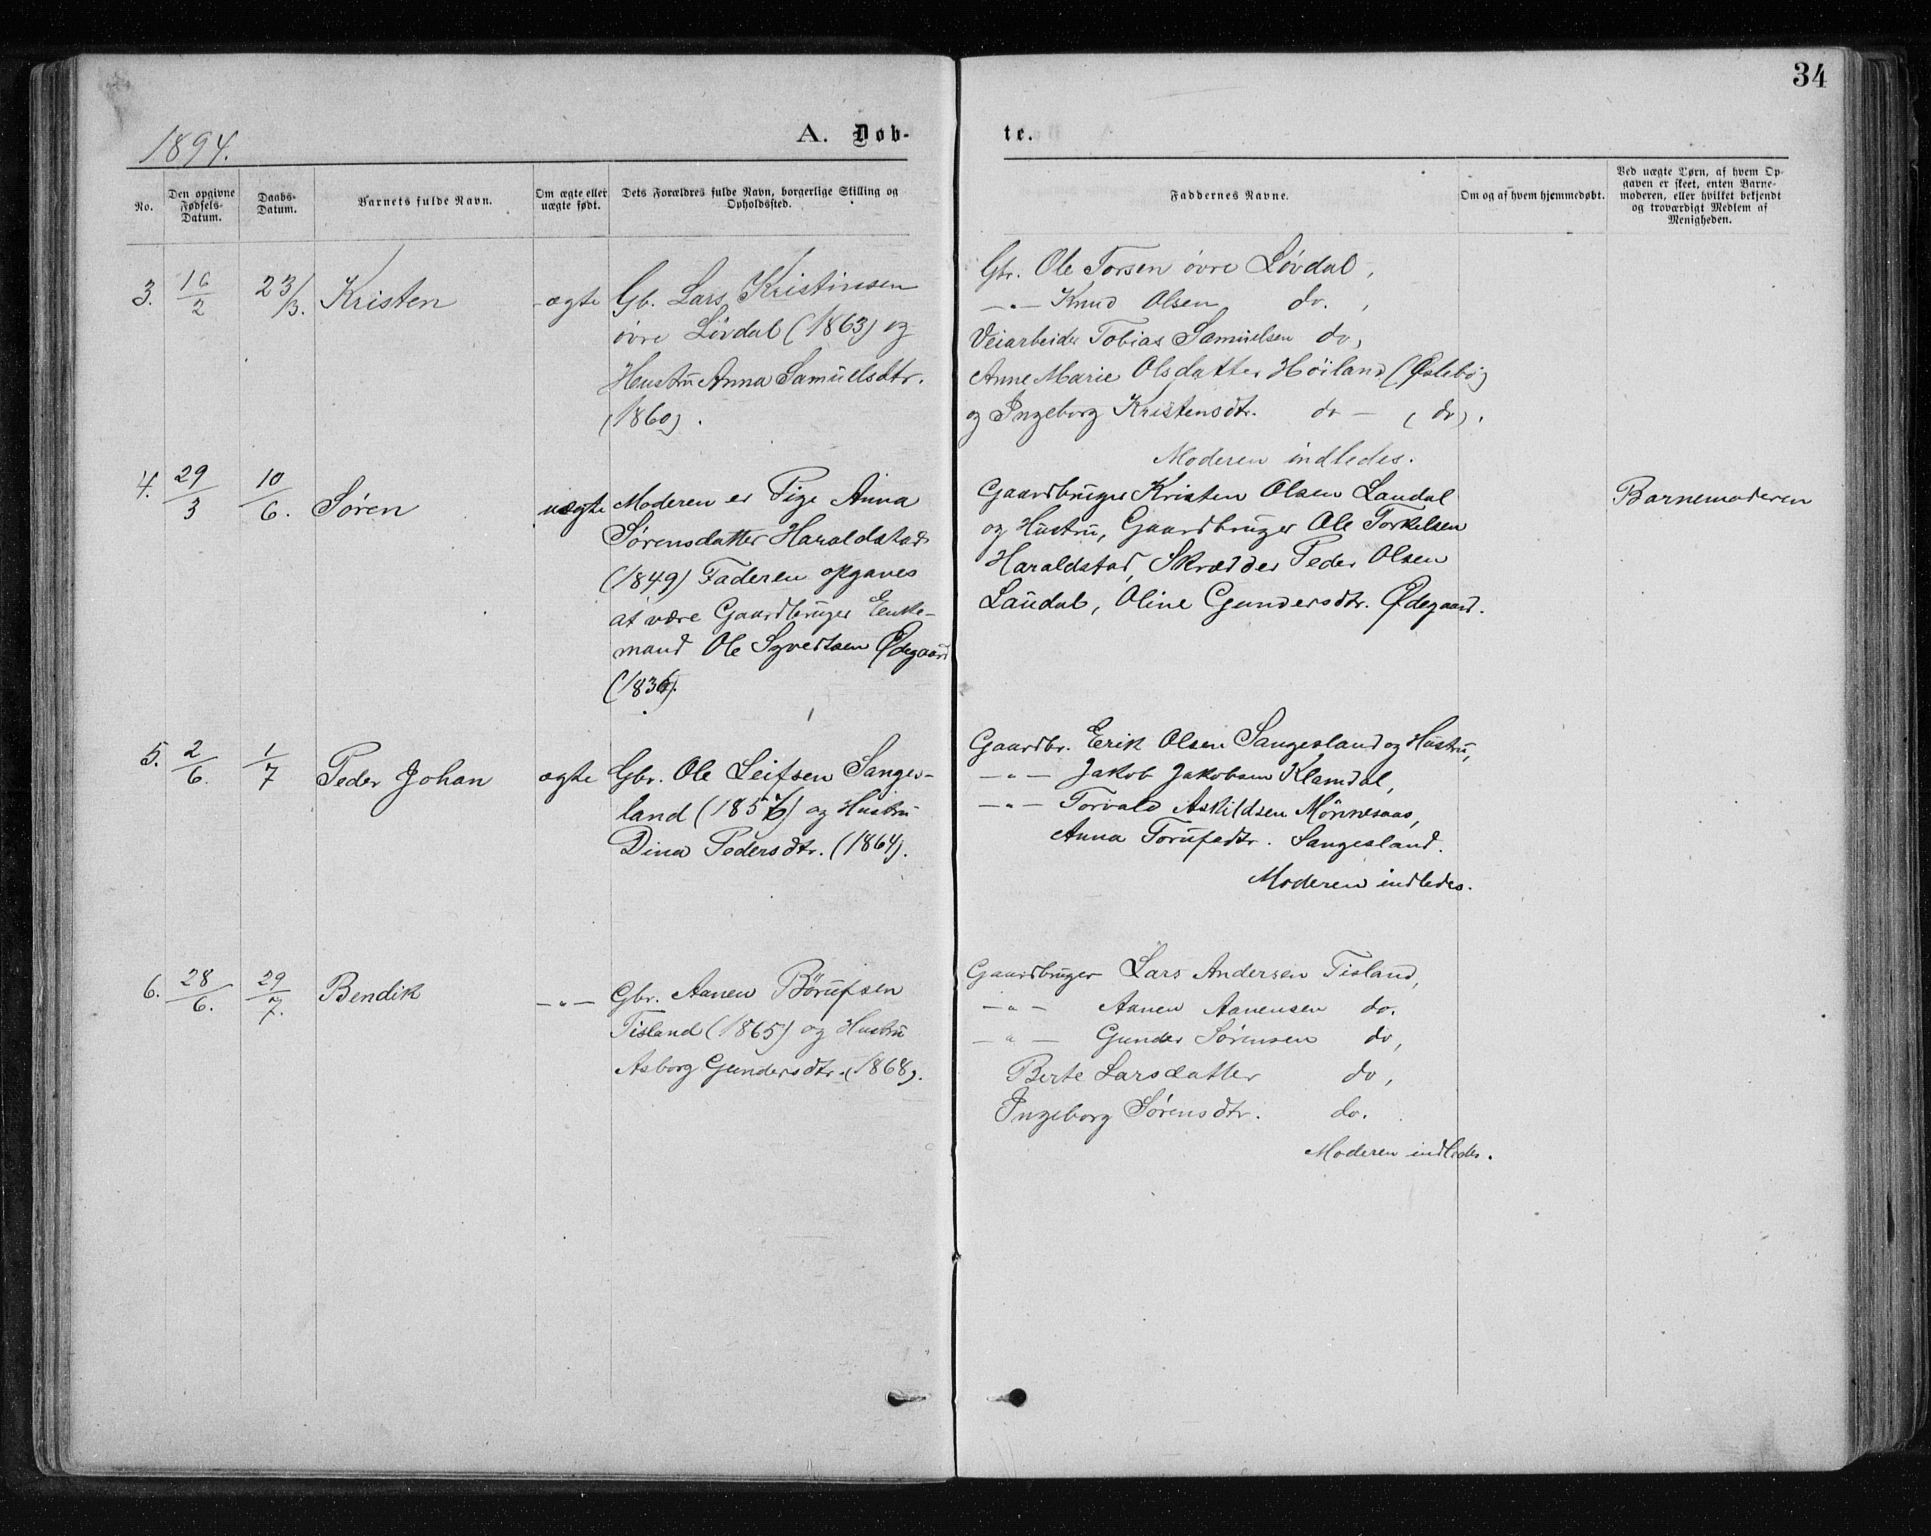 34
1894.
A. Døb-
te.
No.
Den opgivne Fødsels-Datum.
Daabs-Datum.
Barnets fulde Navn.
Om ægte eller uægte født.
Dets Forældres fulde Navn, borgerlige Stilling og Opholdssted.
Faddernes Navne.
Om og af hvem hjemmedøbt.
Ved uægte Børn, af hvem Op-
gaven er skeet, enten Barne-
moderen, eller hvilket bekjendt
og troværdigt Medlem af
Menigheden.
3. 16/2 23/3. Kristen ægte Gb. Lars Kristinsen
øvre Løvdal (1863) og
Hustru Anna Samuelsdtr.
(1860).
Gbr. Ole Torsen øvre Løvdal,
—"— Knud Olsen do.,
Veiarbeider Tobias Samuelsen do,
Anne Marie Olsdatter Høiland (Øslebø)
og Ingeborg Kristensdtr. do — (do).
Moderen indledes.
4. 29/3 10/6. Søren uægte Moderen er Pige Anna
Sørensdatter Haraldstad
(1849) Faderen opgaves
at være Gaardbruger Enke-
mand Ole Syvertsen Ødegaard
(1836).
Gaardbruger Kristen Olsen Laudal
og Hustru, Gaardbruger Ole Torkelsen
Haraldstad, Skrædder Peder Olsen
Laudal, Oline Gundersdtr. Ødegaard.
Barnemoderen
5. 2/6. 1/7 Peder Johan ægte Gbr. Ole Leifsen Sanges-
land (1857) og Hustru
Dina Pedersdtr. (1864).
Gaardbr. Erik Olsen Sangesland og Hustru,
—"— Jakob Jakobsen Klamdal,
—"— Torvald Askildsen Mønnesaas,
Anna Torufsdtr. Sangesland.
Moderen indledes.
6. 28/6. 29/7. Bendik —"— Gbr. Aanen Børufsen
Tisland (1865) og Hustru
Asborg Gundersdtr. (1868).
Gaardbruger Lars Andersen Tisland,
—"— Aanen Aanensen do.
—"— Gunder Sørensen do,
Berte Larsdatter do,
Ingeborg Sørensdtr. do.
Moderen indledes.